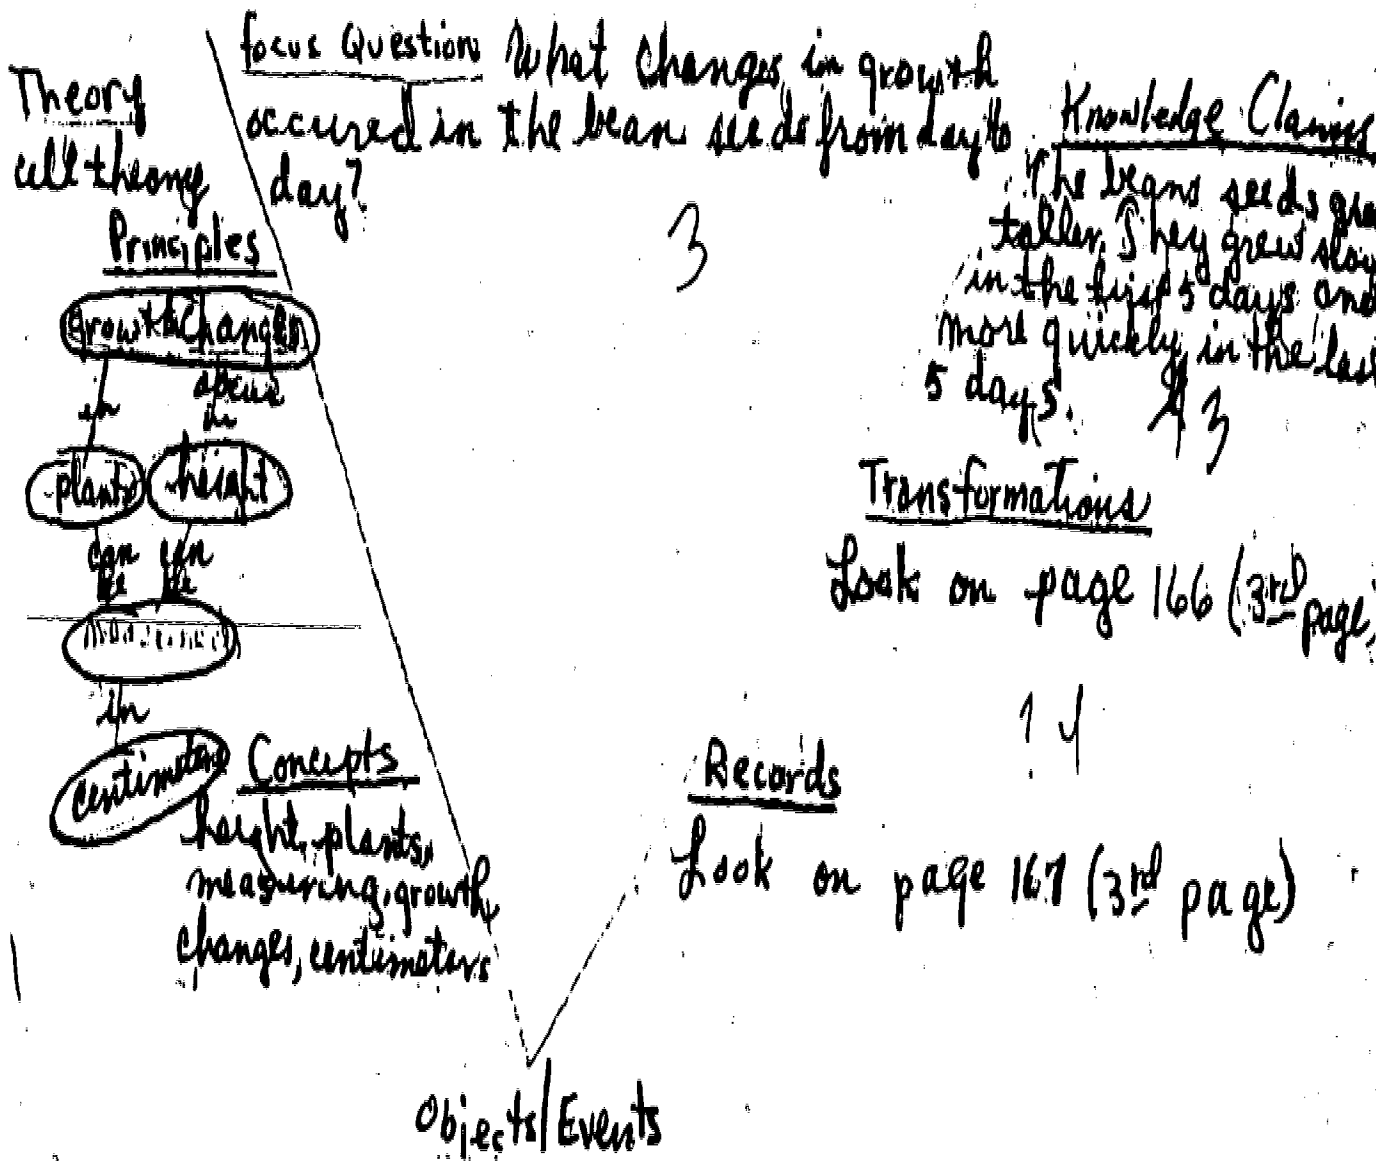 Focus Question What changes in growth
occured in the bean seeds from day to
day?
3
Theory
cell theory
Principles
growth changes
in
occur
in
plants
height
can
be
can
be
measured
in
centimeters
Concepts
height, plants,
measuring, growth,
changes, centimeters
Knowledge Claims
The beans seeds
taller. They grew
in the first 5 days and
more quickly in the last
5 days.
3
Transformations
Look on page 166 (3rd page)
Records
Look on page 167 (3rd page)
Objects/Events